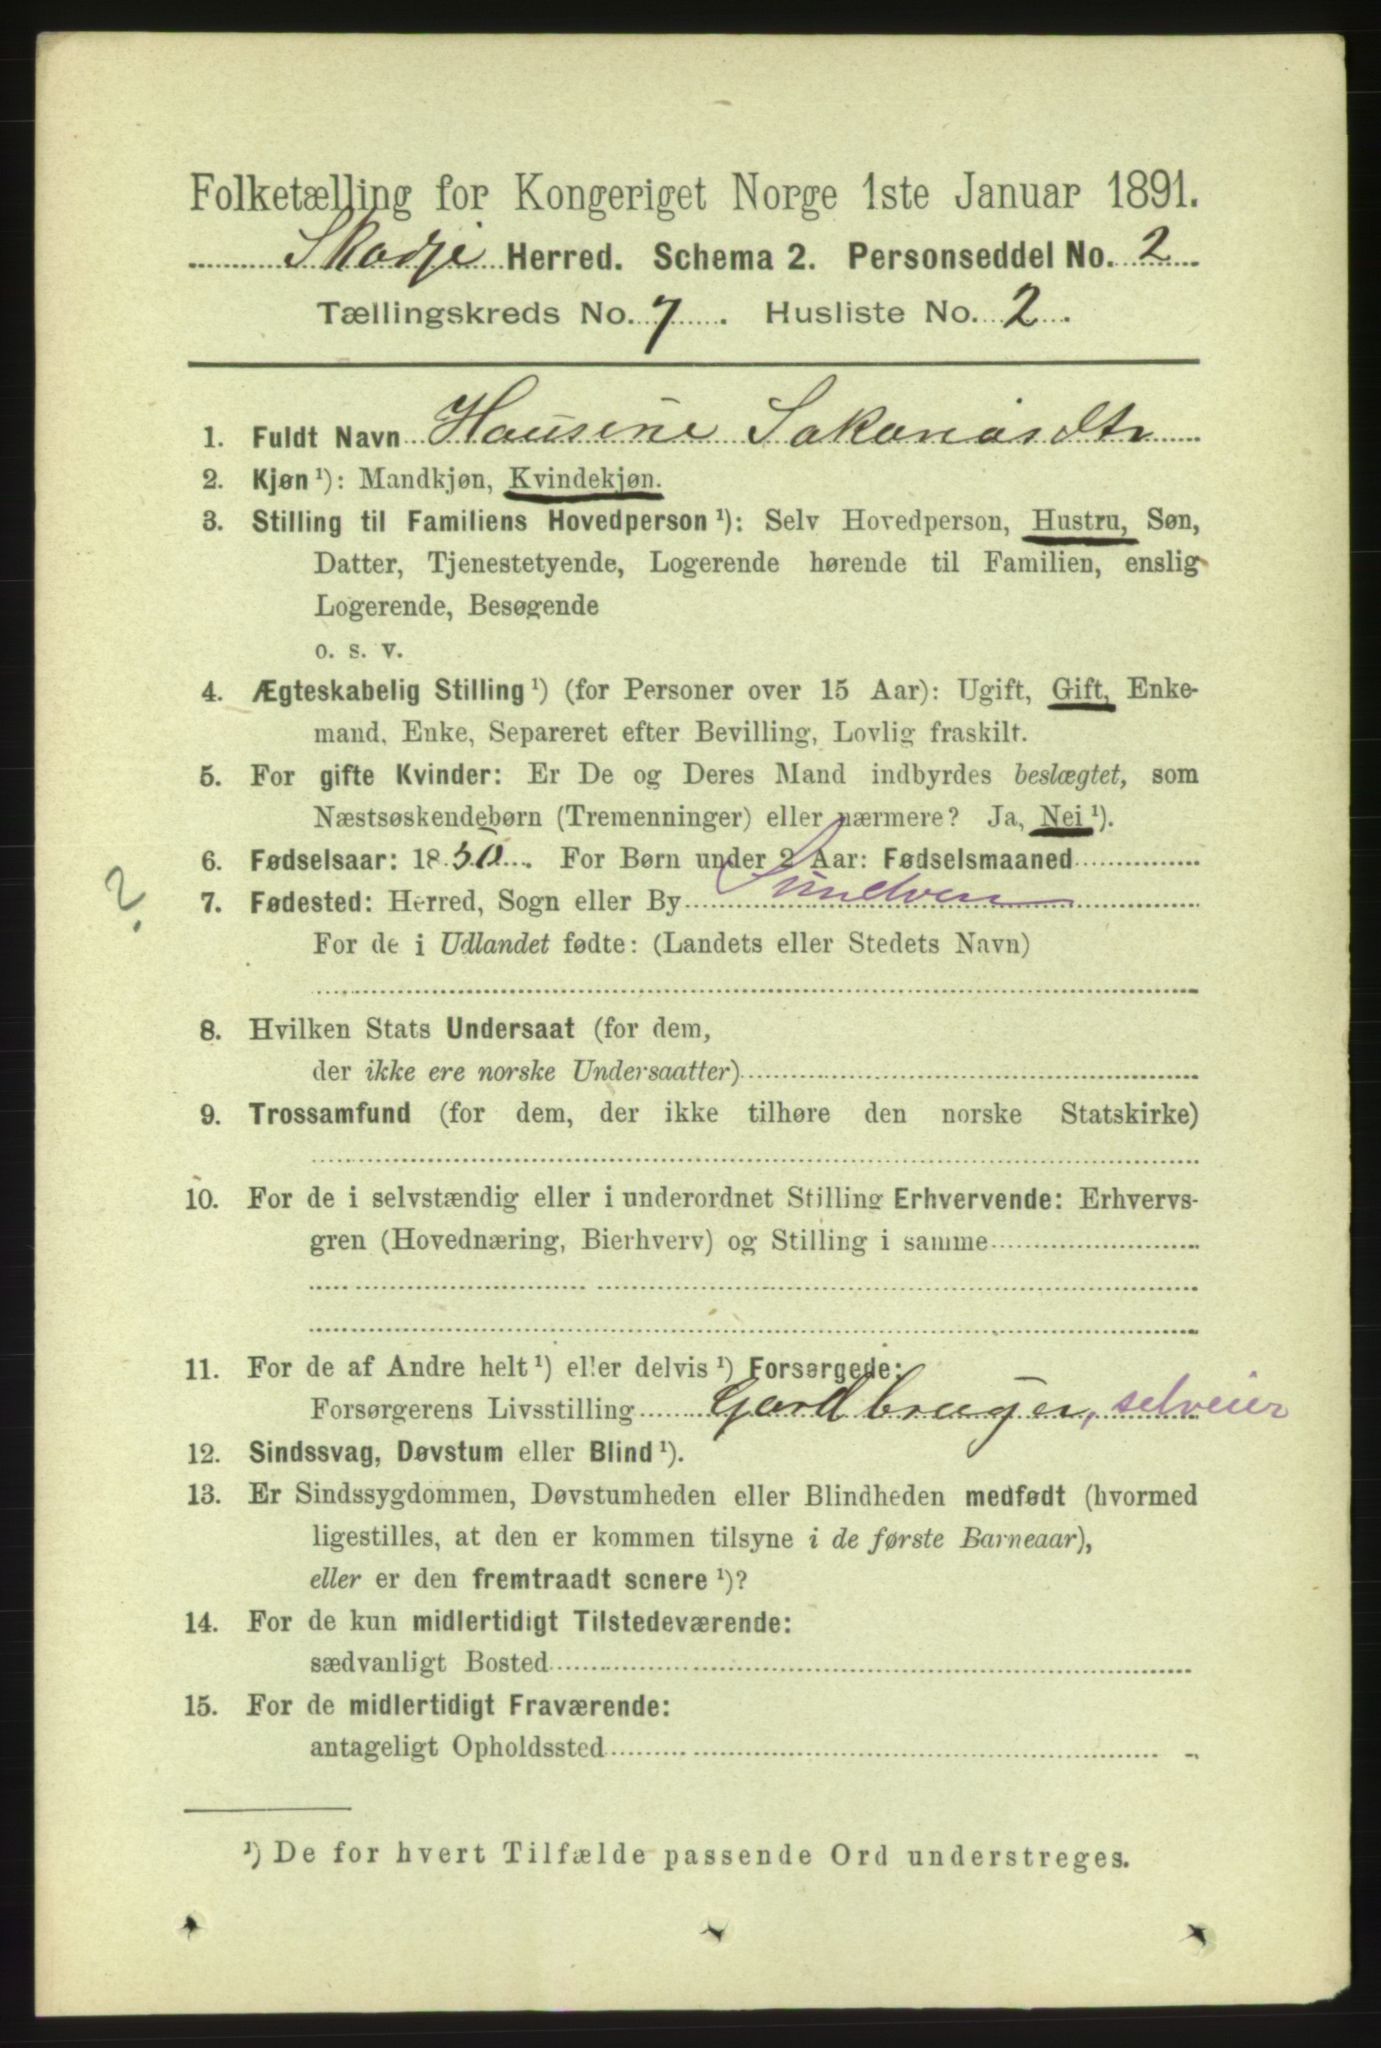 Folketælling for Kongeriget Norge 1ste Januar 1891.
Skodje Herred. Schema 2. Personseddel No. 2
Tællingskreds No. 7. Husliste No. 2.
1. Fuldt Navn Hansine Sakariasdtr
2. Kjøn ¹): Mandkjøn, Kvindekjøn.
3. Stilling til Familiens Hovedperson ¹): Selv Hovedperson, Hustru, Søn,
Datter, Tjenestetyende, Logerende hørende til Familien, enslig
Logerende, Besøgende
o. s. v.
4. Ægteskabelig Stilling ¹) (for Personer over 15 Aar): Ugift, Gift, Enke-
mand, Enke, Separeret efter Bevilling, Lovlig fraskilt.
5. For gifte Kvinder: Er De og Deres Mand indbyrdes beslægtet, som
Næstsøskendebørn (Tremenninger) eller nærmere? Ja, Nei ¹).
6. Fødselsaar: 1850. For Børn under 2 Aar: Fødselsmaaned
?
7. Fødested: Herred, Sogn eller By
For de i Udlandet fødte: (Landets eller Stedets Navn)
8. Hvilken Stats Undersaat (for dem,
der ikke ere norske Undersaatter)
9. Trossamfund (for dem, der ikke tilhøre den norske Statskirke)
10. For de i selvstændig eller i underordnet Stilling Erhvervende: Erhvervs-
gren (Hovednæring, Bierhverv) og Stilling i samme
11. For de af Andre helt ¹) eller delvis ¹) Forsørgede:
Forsørgerens Livsstilling Gardbruger, selveier
12. Sindssvag, Døvstum eller Blind ¹).
13. Er Sindssygdommen, Døvstumheden eller Blindheden medfødt (hvormed
ligestilles, at den er kommen tilsyne i de første Barneaar),
eller er den fremtraadt senere ¹)?
14. For de kun midlertidigt Tilstedeværende:
sædvanligt Bosted
15. For de midlertidigt Fraværende:
antageligt Opholdssted
¹) De for hvert Tilfælde passende Ord understreges.